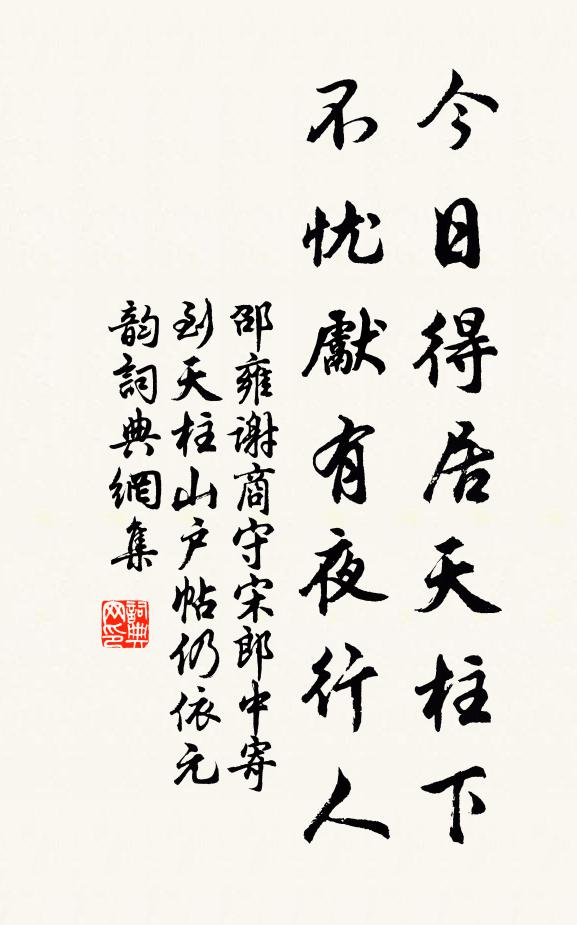 今日得居天柱下
不忧獻有夜行人
邵雍谢商守宋郎中寄
到天柱山户帖仍依元
韵詞典網集
詞典网印